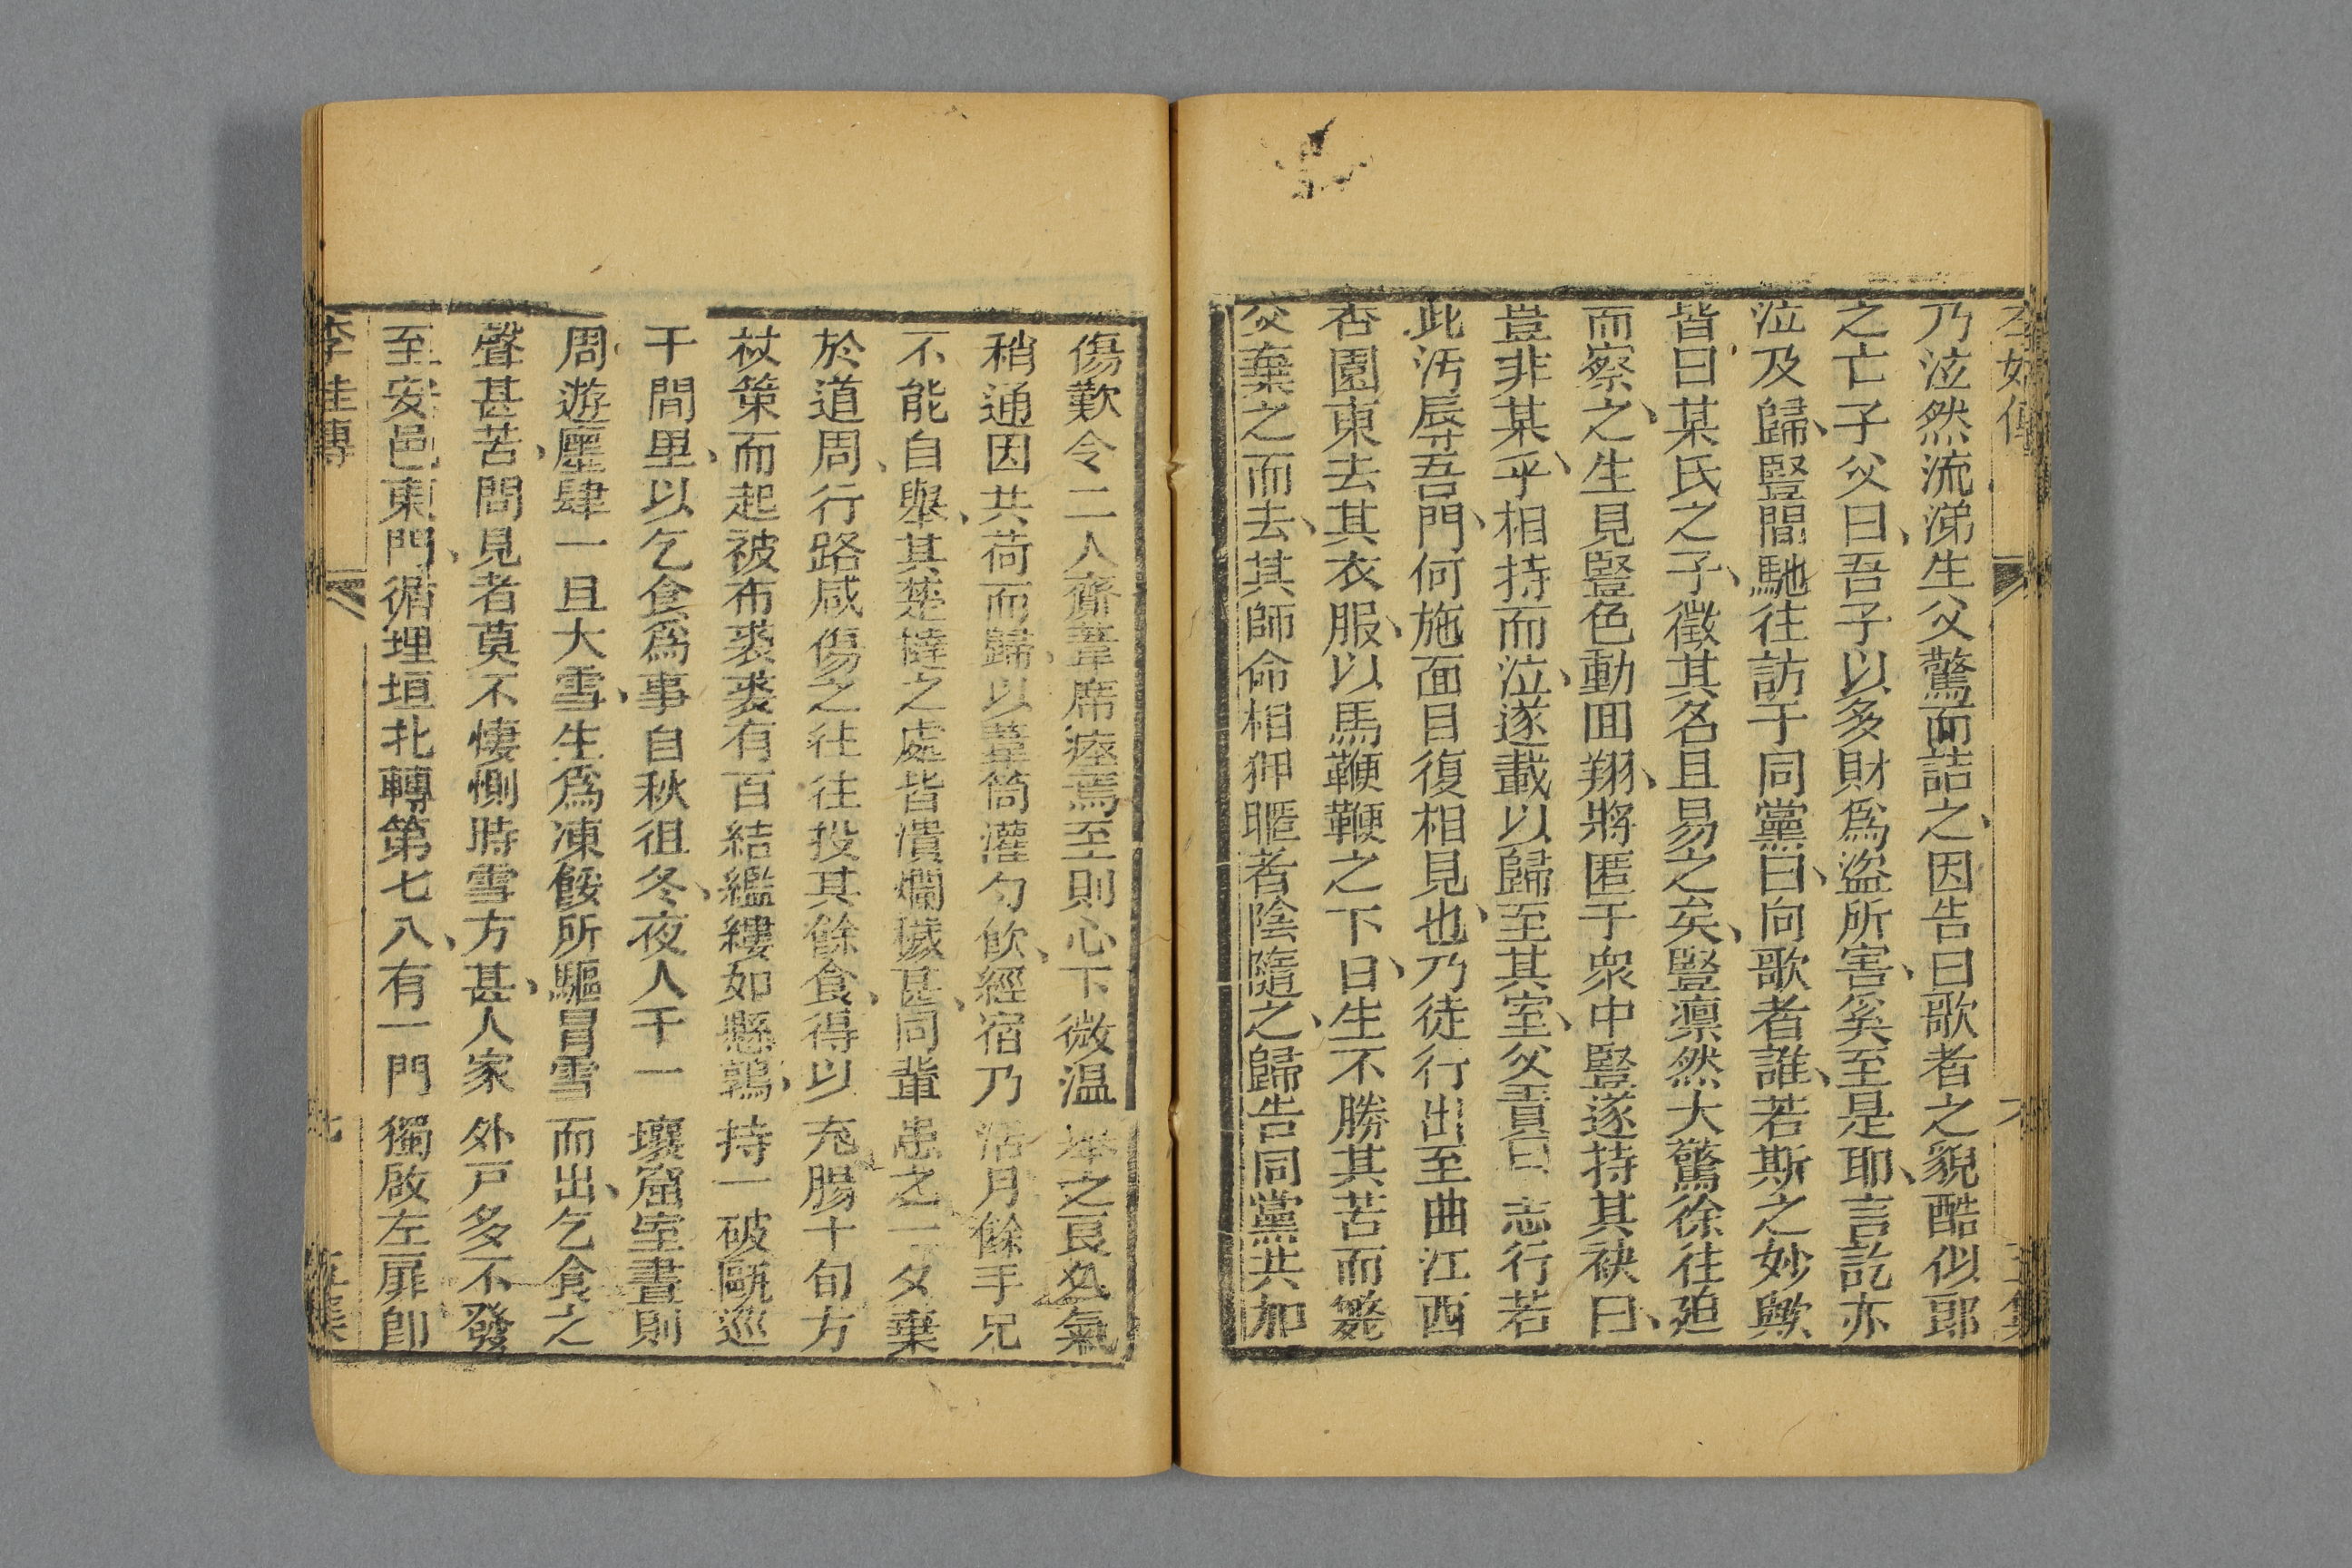 乃泫然流涕生父驚而詰之、因告曰歌者之貌酷似郎
之亡子父曰、吾子以多財爲盜所害、奚至是耶、言訖亦
泣及歸、豎間馳往訪于同黨曰、向歌者誰、若斯之妙歟、
皆曰某氏之子、徵其名且易之矣、豎凛然大驚徐往廹
而察之、生見豎色動囬翔、將匿于衆中豎遂持其袂曰、
豈非某乎、相持而泣、遂載以歸至其室、父責曰志行若
此汚辱吾門、何施面目復相見也、乃徒行出至曲江西
杏園東去其衣服、以馬鞭鞭之下曰、生不勝其苦而斃
父棄之而去、其師命相狎暱者陰隨之、歸告同黨共加
傷歎令二人齎葦席瘞焉至則心下微温舉之良久氣
稍通因共荷而歸、以葦筒灌勺飲、經宿乃活月餘手足
不能自舉、其楚撻之處皆潰爛穢甚、同輩患之一夕棄
於道周、行路咸傷之往往投其餘食、得以充腸十旬方
杖策而起被布裘裘有百結繿縷如懸鶉、持一破甌巡
于閭里、以乞食爲事自秋徂冬、夜入于一壤窟室晝則
周遊廛肆一旦大雪、生爲凍餒所驅冒雪而出、乞食之
聲甚苦、聞見者莫不悽惻時雪方甚、人家外戸多不發
至安邑東門、循理垣北轉第七八、有一門獨啟左扉卽
李娃傳